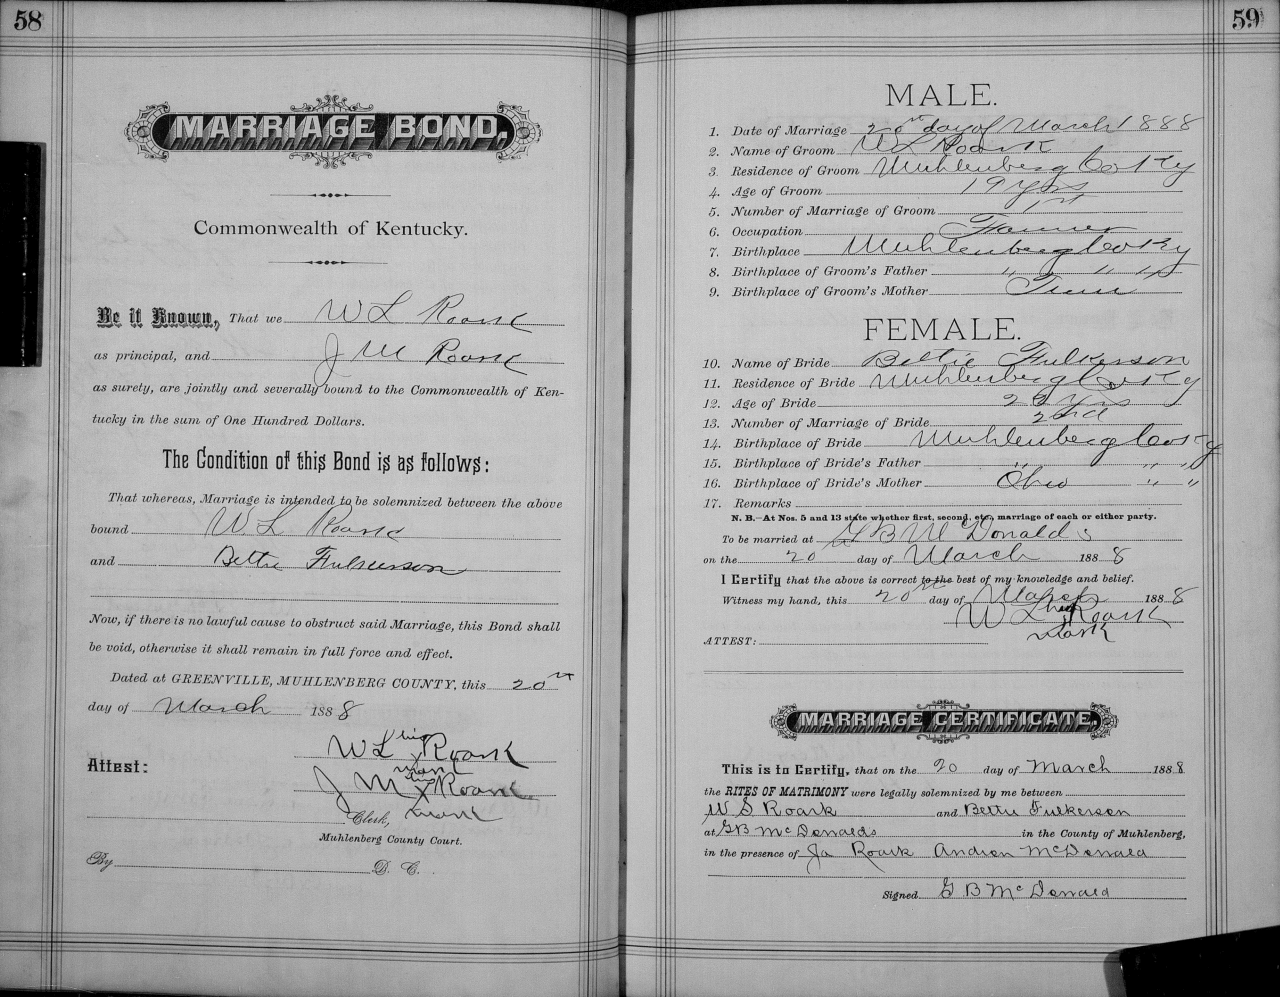 58
MARRIAGE BOND.
Commonwealth of Kentucky.
Be it Known, That we W L Roark
as principal, and J M Roark
as surety, are jointly and severally bound to the Commonwealth of Ken-
tucky in the sum of One Hundred Dollars.
The Condition of this Bond is as follows:
That whereas, Marriage is intended to be solemnized between the above
bound W. L Roark
and Bettie Fulkerson
Now, if there is no lawful cause to obstruct said Marriage, this Bond shall
be void, otherwise it shall remain in full force and effect.
Dated at GREENVILLE, MUHLENBERG COUNTY, this 20th
day of March 1888
W L his x Roark
mark
Attest:
J M his x Roark
mark
Clerk,
Muhlenberg County Court.
By D. C.
59
MALE.
1. Date of Marriage 20th day of March 1888
2. Name of Groom W L Roark
3. Residence of Groom Muhlenberg Co Ky
4. Age of Groom 19 yrs
5. Number of Marriage of Groom 1st
6. Occupation Farmer
7. Birthplace Muhlenberg Co Ky
8. Birthplace of Groom's Father " " "
9. Birthplace of Groom's Mother Tenn
FEMALE.
10. Name of Bride Bettie Fulkerson
11. Residence of Bride Muhlenberg Co Ky
12. Age of Bride yrs
13. Number of Marriage of Bride 2nd
14. Birthplace of Bride Muhlenberg Co Ky
15. Birthplace of Bride's Father " " "
16. Birthplace of Bride's Mother Ohio " "
17. Remarks
N. B.—At Nos. 5 and 13 state whether first, second, etc., marriage of each or either party.
To be married at G B McDonalds
on the 20 day of March 1888
I Certify that the above is correct to the best of my knowledge and belief.
Witness my hand, this 20th day of March 1888
W L his x Roark
mark
ATTEST:
MARRIAGE CERTIFICATE.
This is to Certify, that on the 20 day of March 1888
the RITES OF MATRIMONY were legally solemnized by me between
W. S Roark and Bettie Fulkerson
at G B McDonalds in the County of Muhlenberg,
in the presence of Ja Roark McDonald
Signed G B McDonald